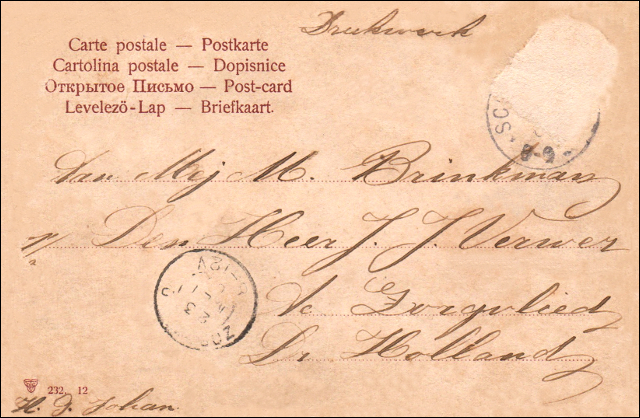 Drukwerk
Carte postale — Postkarte
Cartolina postale — Dopisnice
Открытое Письмо — Post-card
Levelezö-Lap — Briefkaart.
Aan Mej M. Brinkman
p/a Den Heer J. J. Verwer
Zorgvlied
Dr Holland
232. 12
H. J. Johan.